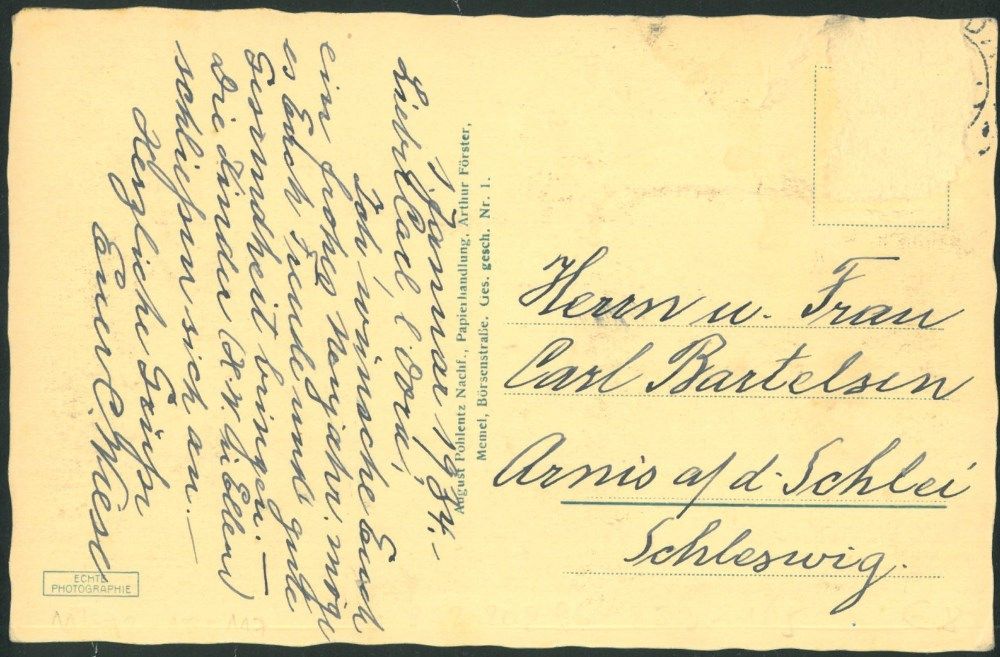 1. Januar 1934.-
Lieb. Carl & Dora,
Ich wünsche Euch
ein frohes Neujahr. möge
es Euch Freude und gute
Gesundheit bringen. -
Die Kinder
schließen sich an. -
Herzliche Grüße
Euer C. Wiese
August Pohlentz Nachf., Papierhandlung, Arthur Förster,
Memel, Börsenstraße. Ges. gesch. Nr. 1.
Herrn u. Frau
Carl Bartelsen
Arnis a/d. Schlei
Schleswig.
ECHTE
PHOTOGRAPHIE